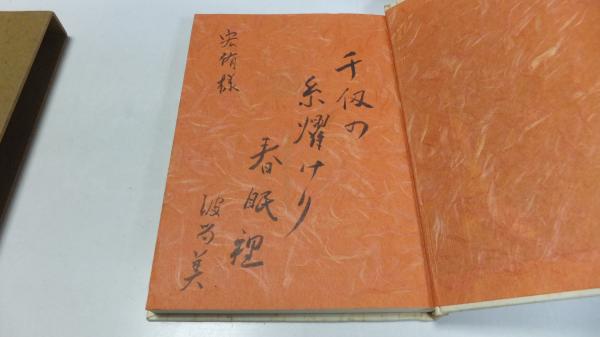 千仭の
糸耀けり
春眠裡
波留美
宏侑様